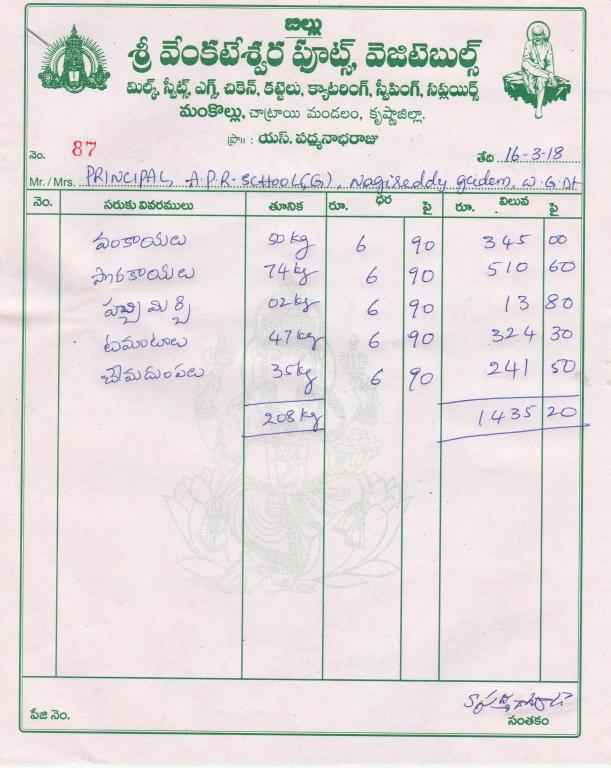 బిల్లు
శ్రీ వేంకటేశ్వర ఫ్రూట్స్, వెజిటెబుల్స్
మిల్క్, స్వీట్స్, ఎగ్స్, చికెన్, కట్టెలు, క్యాటరింగ్, స్వీపింగ్, సప్లెయర్స్
మంకొల్లు, చాట్రాయి మండలం, కృష్ణాజిల్లా.
ప్రొ॥ : యస్. పద్మనాభరాజు
నెం. 87 తేది 16-3-18
Mr. / Mrs. PRINCIPAL, A.P.R. SCHOOL(G), Nagireddy gudem, W.G.Dt
నెం. సరుకు వివరములు తూనిక రూ. ధర పై రూ. విలువ పై
వంకాయలు 50 kg 6 90 345 00
సొరకాయలు 74 kg 6 90 510 60
పచ్చిమిర్చి 02 kg 6 90 13 80
టమాటాలు 47 kg 6 90 324 30
చామదుంపలు 35 kg 6 90 241 50
208 kg 1435 20
పేజి నెం. సంతకం